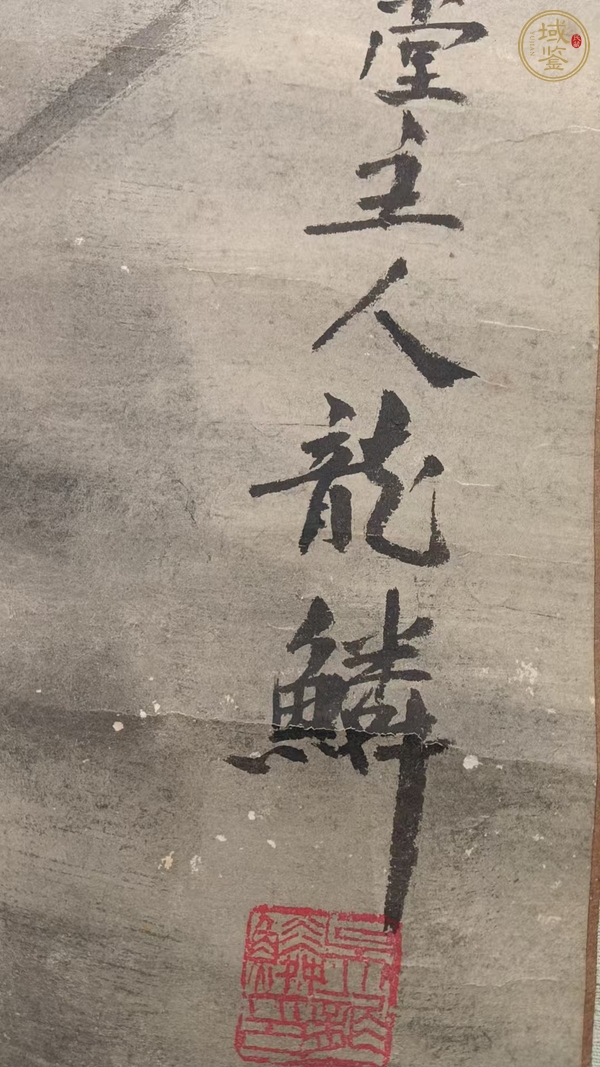 堂主人龍鱗
域鉴